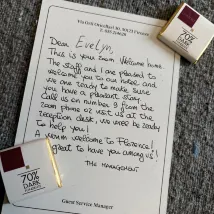 Dear Evelyn,
This is your room. Welcome home.
The staff and I are pleased to
welcome you to our hotel, and
we are ready to make sure
you have a pleasant stay.
Call us on number 9 from the
room phone or visit us at the
reception desk, we will be ready
to help you!
A warm welcome to Florence!
great to have you among us!
The Management
Guest Service Manager
70%
DARK
70%
DARK